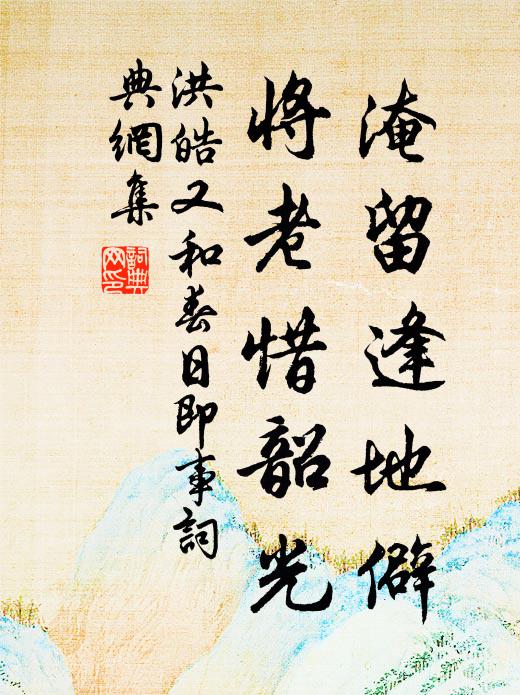 淹留逢地僻
将老惜韶光
洪皓又和春日即事詞
典網集
詞典
网印